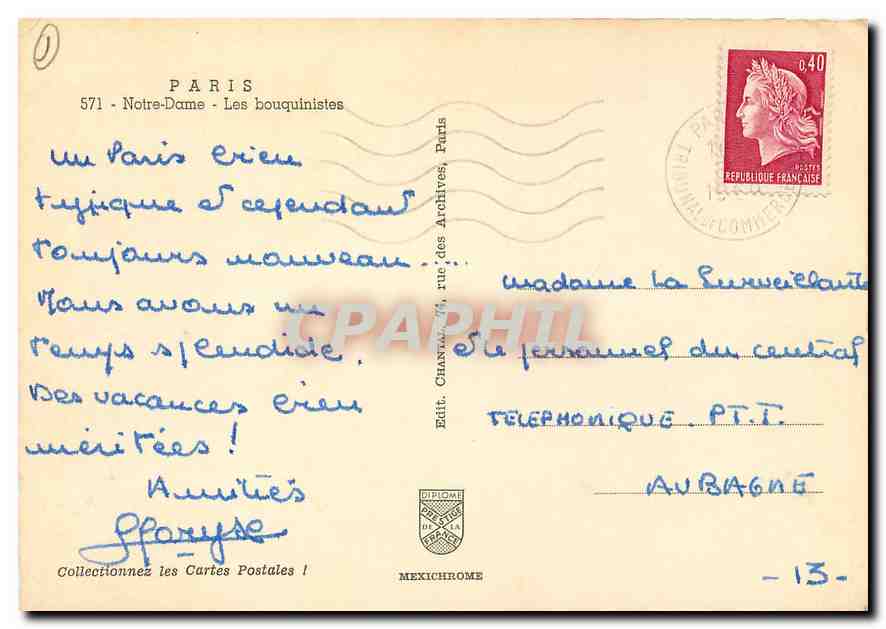 1
PARIS
571 - Notre-Dame - Les bouquinistes
un Paris bien
typique et cependant
toujours nouveau....
Nous avons un
temps splendide.
Des vacances bien
méritées !
Amitiés
Maryse
Collectionnez les Cartes Postales !
Edit. CHANTAL, 74, rue des Archives, Paris
DIPLOME
PRESTIGE
DE LA
FRANCE
MEXICHROME
0,40
POSTES
REPUBLIQUE FRANÇAISE
PA
TRIBUNAL DE COMMERCE
CPAPHIL
Madame La Surveillante
et le personnel du central
TELEPHONIQUE. P.T.T.
AUBAGNE
- 13 -